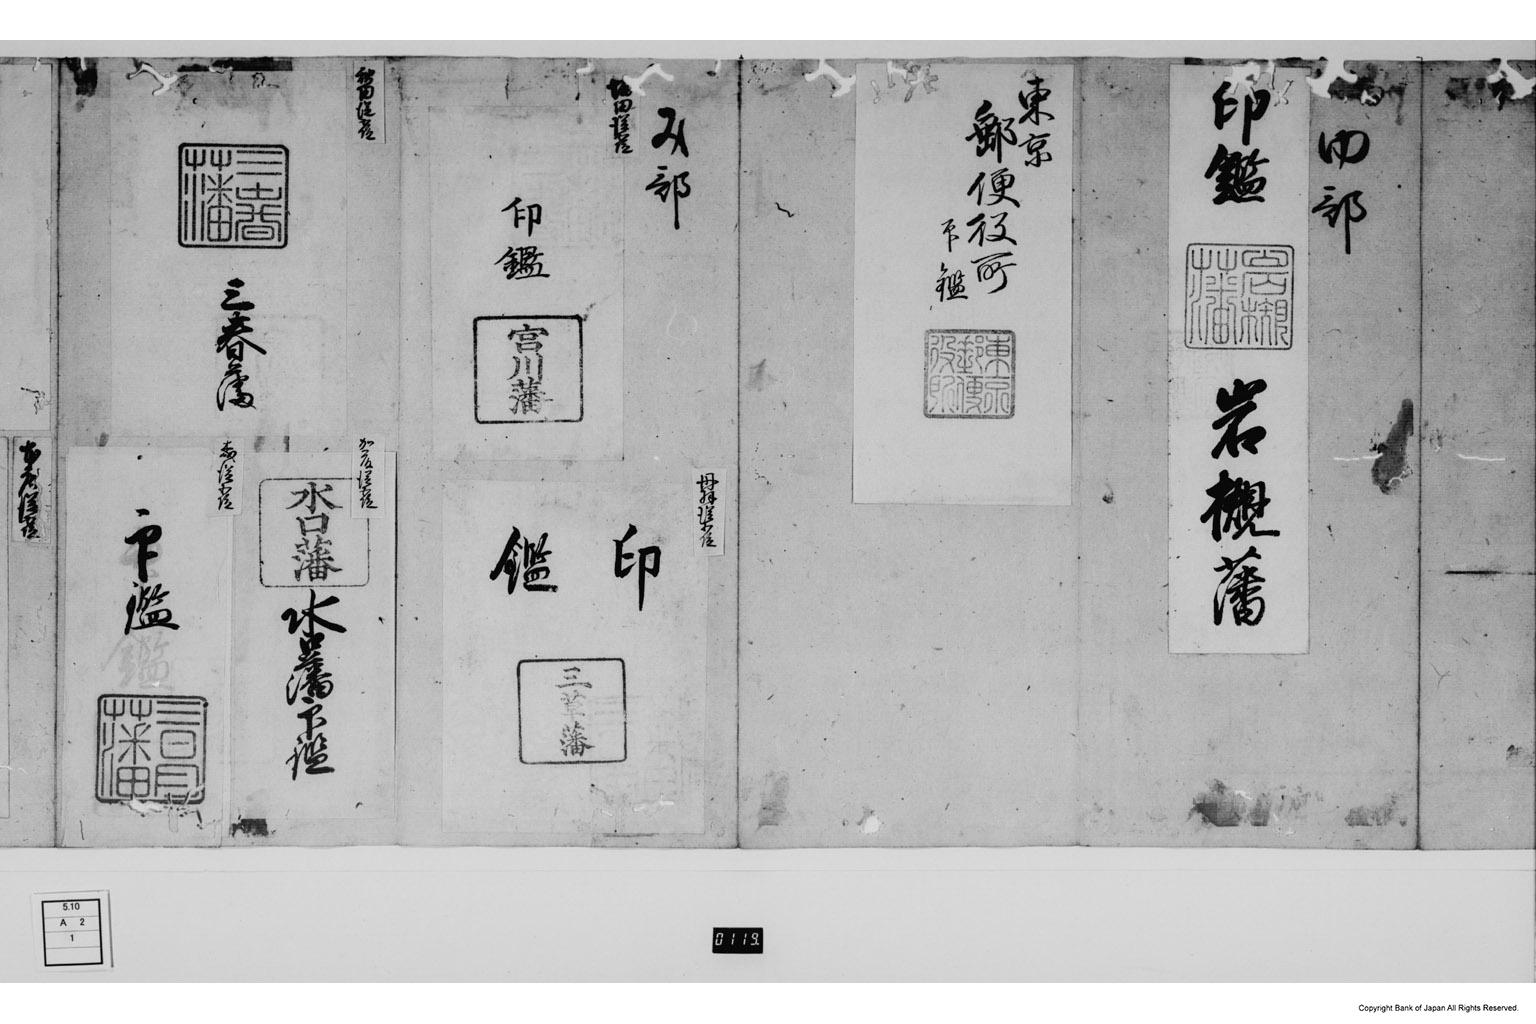 印鑑
岩槻藩
岩槻藩
東京
郵便役所
印鑑
東京
郵便
役所
み部
印鑑
宮川藩
印鑑
三草藩
三春藩
三春藩
水口藩
水口藩印鑑
印鑑
三日月藩
5.10
A 2
1
0119
Copyright Bank of Japan All Rights Reserved.